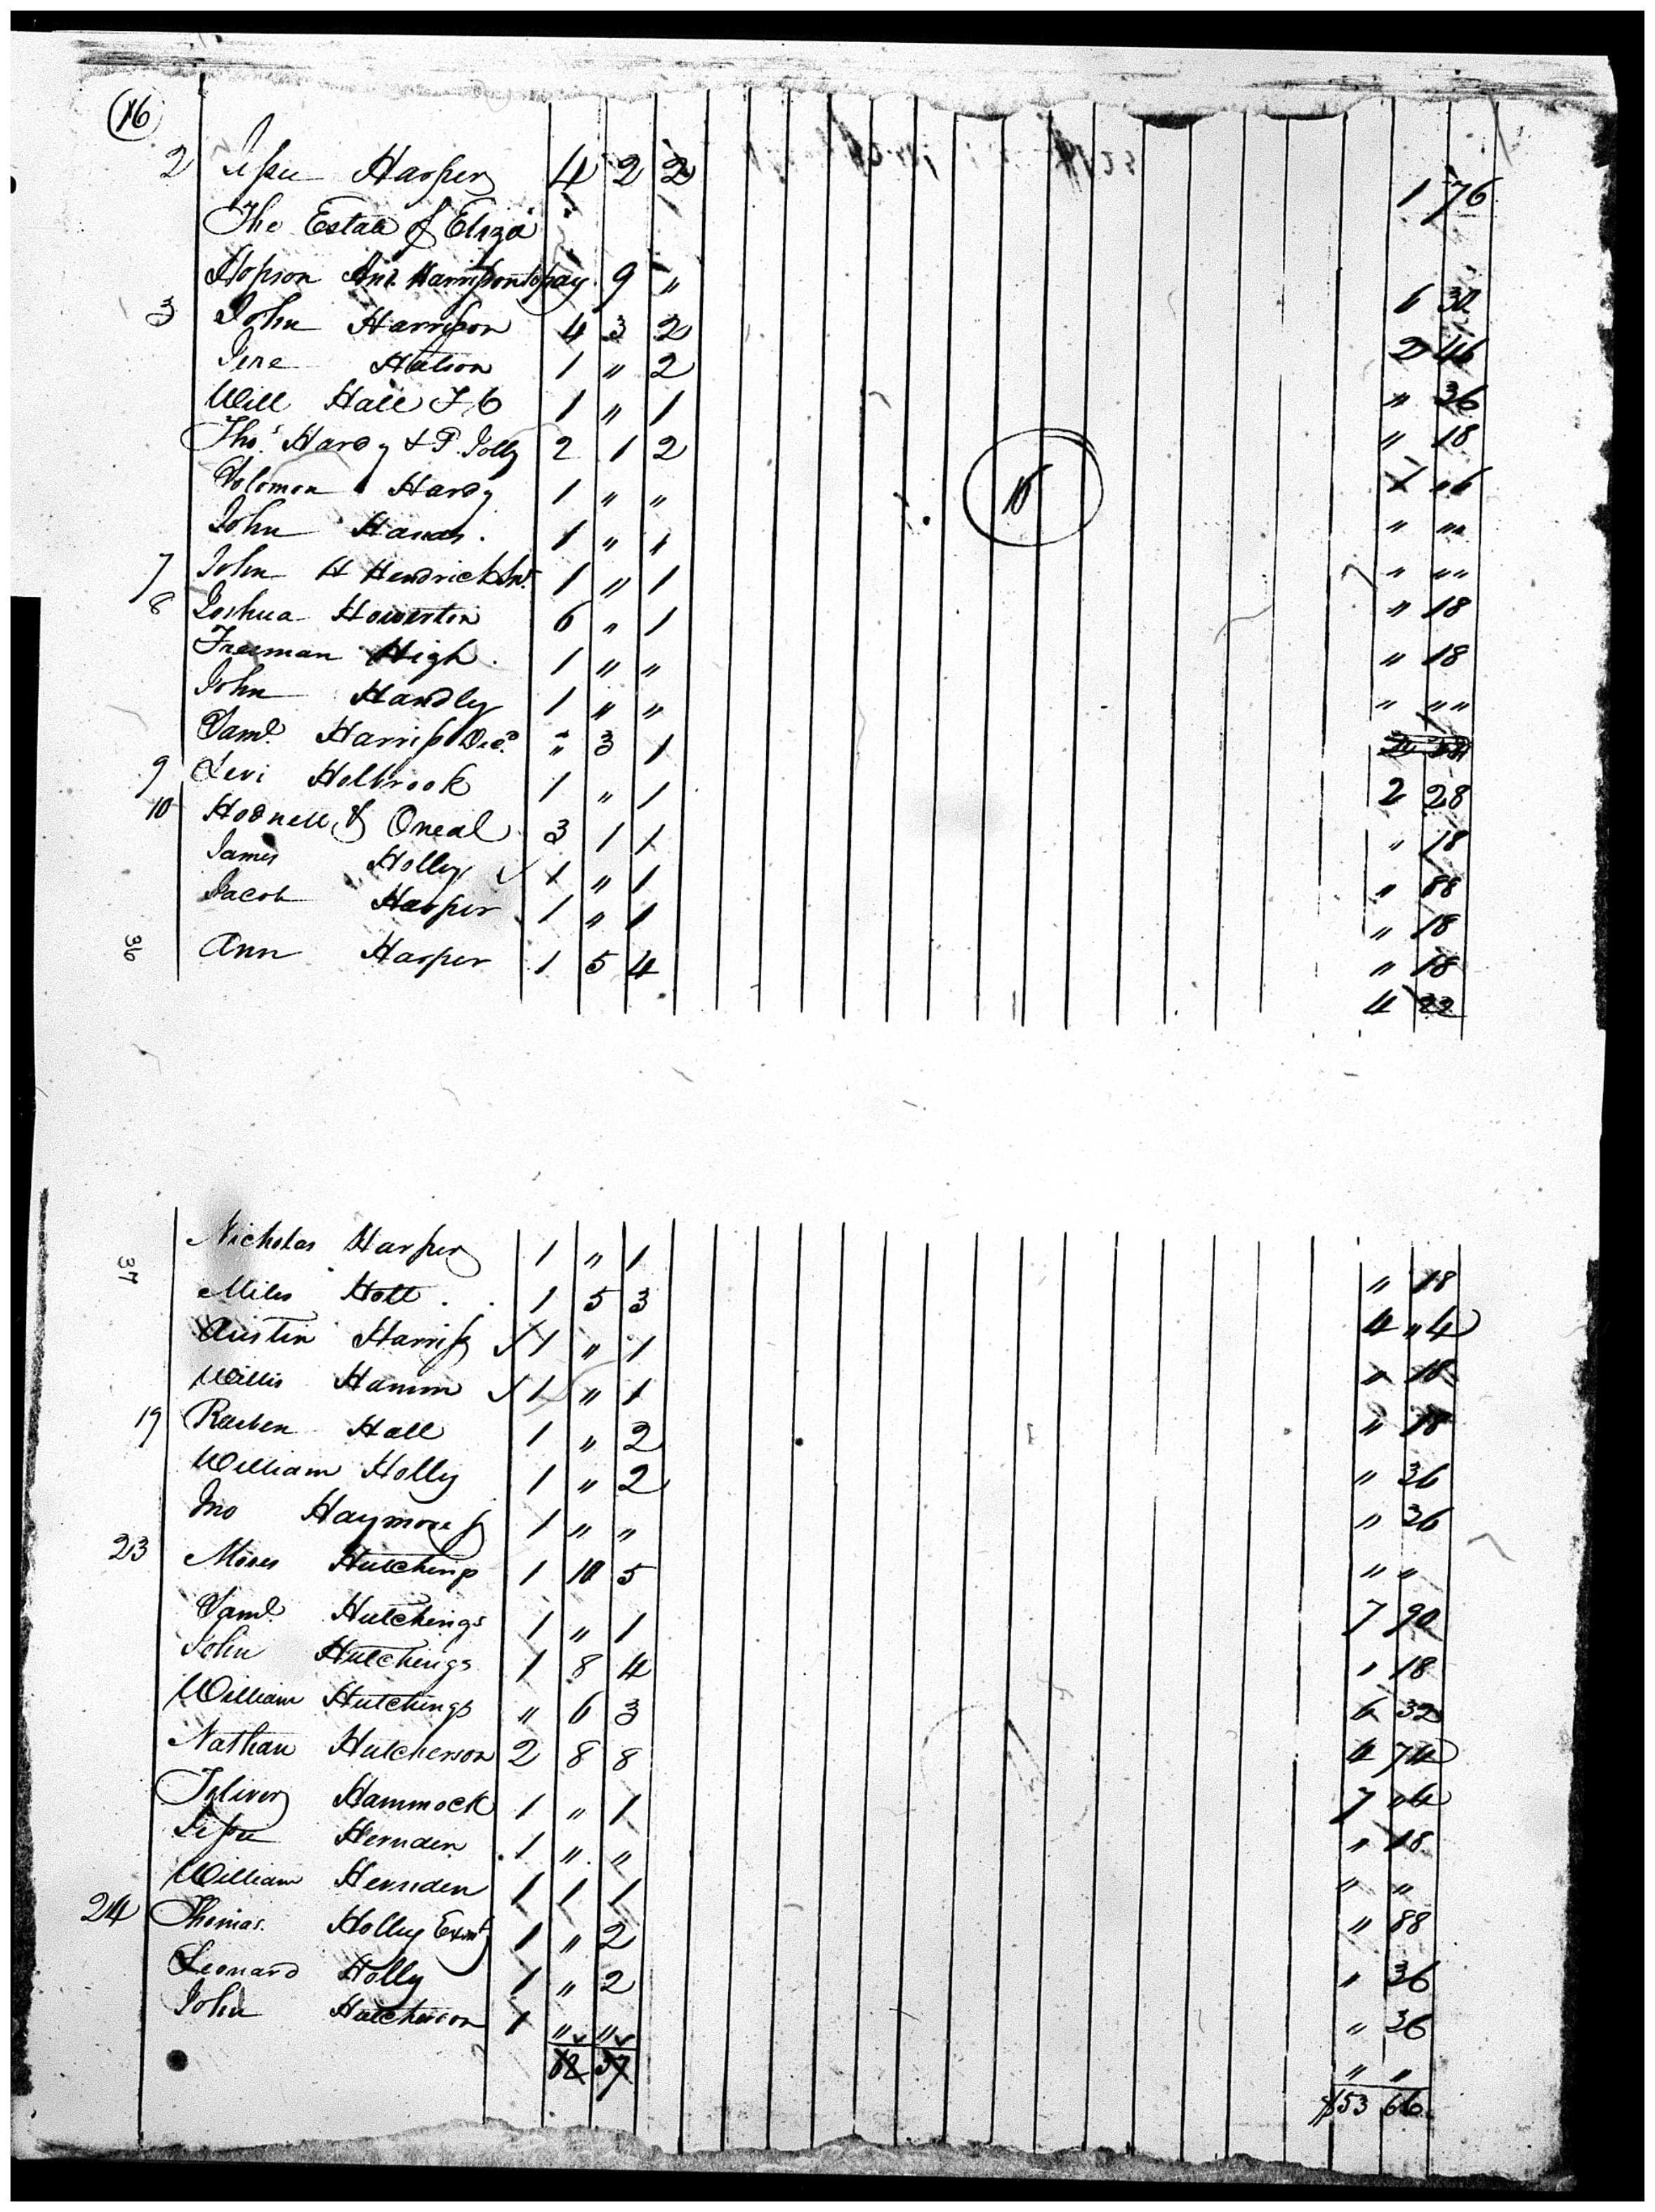 16
2 Jesse Harper 4 2 2 1 76
The Estate of Eliza
Hopson Ant. Harrison to pay. 9 " 6 30
3 John Harrison 4 3 2 2 46
Jere Hatson 1 " 2 " 36
Will Hall 1 " 1 " 18
Thos. Hardy & P. Jolly 2 1 2 1 "6
Solomon Hardy 1 " " " ""
John 1 " " " ""
7 John H Hendrick 1 " 1 " 18
8 Joshua Howerton 6 " 1 " 18
Freeman High. 1 " " " ""
John Handly 1 " "
Saml. Harriss Decd. " 3 1 2 28
9 Levi Holbrook 1 " 1 " 18
10 Hodnett & Oneal 3 1 1 " 88
James Holley 1 " 1 " 18
Jacob Harper 1 " 1 " 18
36 Ann Harper 1 5 4 4 22
16
37 Nicholas Harper 1 " 1 " 18
Miles Holt 1 5 3 4 "4
Austin Harriss 1 " 1 " 18
Willis Hamm 1 " 1 " 18
19 Reuben Hall 1 " 2 " 36
William Holly 1 " 2 " 36
Jno Haymore 1 " " " "
23 Moses Hutchings 1 10 5 7 90
Saml. Hutchings 1 " 1 " 18
John Hutchings 1 8 4 6 32
William Hutchings " 6 3 4 74
Nathan Hutcherson 2 8 8 7 "4
Toliver Hammock 1 " 1 " 18
Jesse Hernden 1 " " " "
William Hernden 1 1 1 " 88
24 Thomas Holley 1 " 2 " 36
Leonard Holly 1 " 2 " 36
John Hutcherson 1 " " " "
62 57 $53 66